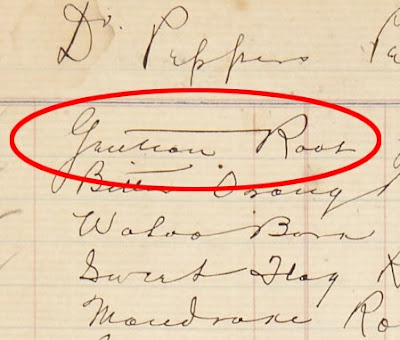 Dr. Peppers Pe
Gentian Root
Bitter Orange
Wahoo Bark
Sweet Flag
Mandrake Ro